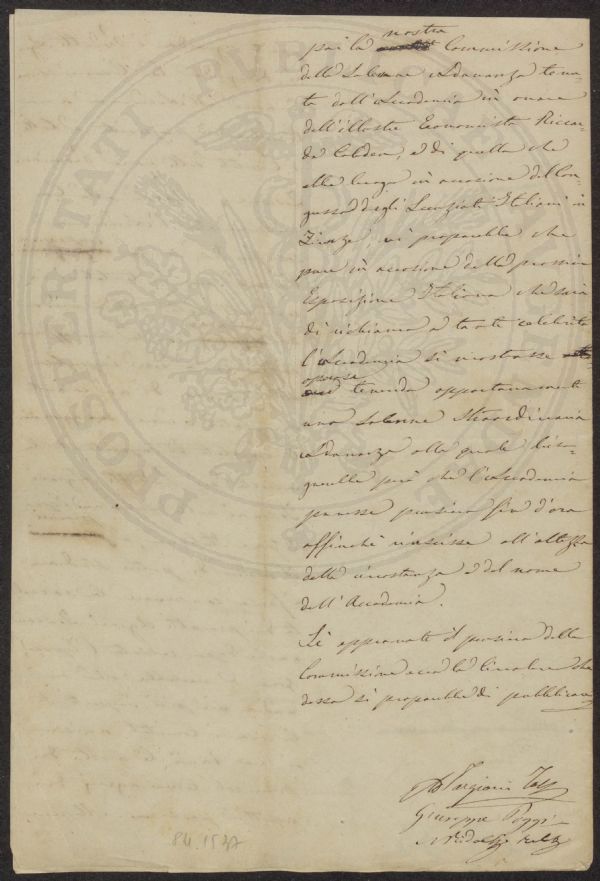 poi la nostra Commissione
della Solenne Adunanza tenu-
ta dall'Accademia in onore
dell'illustre Economista Riccar-
do Cobden, e di quella che
ebbe luogo in occasione del Con-
gresso degli Scienziati Italiani in
Firenze, vi proporrebbe che
pure in occasione della prossima
Esposizione Italiana che sarà
di richiamo a tante celebrità
l'Accademia si mostrasse
operosa tenendo opportunamente
una Solenne Straordinaria
Adunanza alla quale biso-
gnerebbe però che l'Accademia
pensasse fin d'ora
affinchè riuscisse all'altezza
della circostanza e del nome
dell'Accademia.
Si approvate il parere della
Commissione ecco la Circolare che
dessa si proporrebbe di pubblicare
Targioni Tozz
Giuseppe Poggi
84.1537
PROSPERITATI PUBLICAE